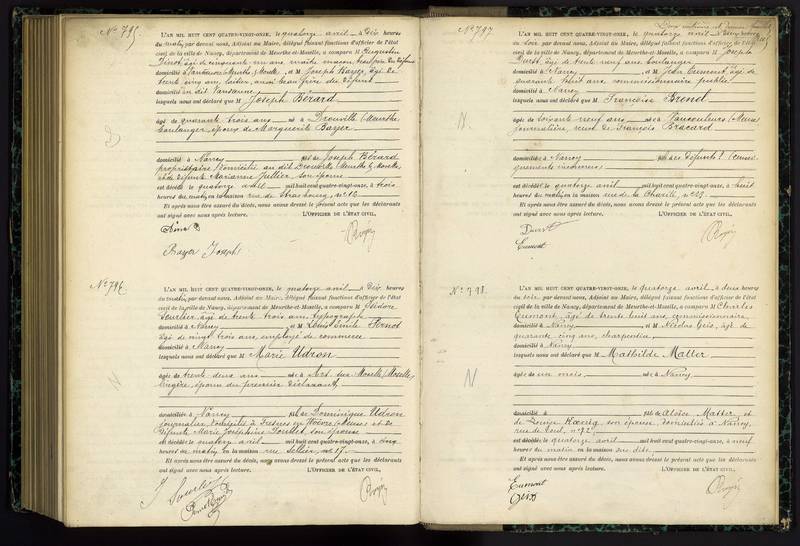 N° 795
L'AN MIL HUIT CENT QUATRE-VINGT-ONZE, le quatorze avril à dix heures
du matin, par devant nous, Adjoint au Maire, délégué faisant fonctions d'officier de l'état
civil de la ville de Nancy, département de Meurthe-et-Moselle, a comparu M
âgé de cinquante un ans
domicilié à et M Joseph Bayer, âgé de
trente cinq ans, du défunt
lesquels nous ont déclaré que M Joseph Bérard
B
âgé de quarante trois ans né à Drouville (Meurthe)
boulanger, époux de Marguerite Bayer
domicilié à Nancy fils de Joseph Bérard
propriétaire, domicilié au dit Drouville (Meurthe & Moselle)
et de défunte Marianne Jullier, son épouse
est décédé le quatorze avril mil huit cent quatre-vingt-onze, à trois
heures du matin en la maison rue de Strasbourg, n° 10
Et après nous être assuré du décès, nous avons dressé le présent acte que les déclarants
ont signé avec nous après lecture. L'OFFICIER DE L'ÉTAT CIVIL,
Bayer Joseph
N° 796
L'AN MIL HUIT CENT QUATRE-VINGT-ONZE, le quatorze avril à dix heures
du matin, par devant nous, Adjoint au Maire, délégué faisant fonctions d'officier de l'état
civil de la ville de Nancy, département de Meurthe-et-Moselle, a comparu M Isidore
âgé de trente trois ans, typographe
domicilié à Nancy et M Louis Emile Pernot
âgé de vingt trois ans, employé de commerce
domicilié à Nancy
lesquels nous ont déclaré que M Marie Udron
N
âgée de trente deux ans née à Ars sur Moselle (Moselle)
lingère, épouse du premier déclarant
domiciliée à Nancy fille de Dominique Udron
journalier, domicilié à Fresnes en Woëvre (Meuse) et de
défunte Marie Joséphine son épouse
est décédée le quatorze avril mil huit cent quatre-vingt-onze, à cinq
heures du matin en la maison rue Sellier, n° 17
Et après nous être assuré du décès, nous avons dressé le présent acte que les déclarants
ont signé avec nous après lecture. L'OFFICIER DE L'ÉTAT CIVIL,
N° 797
L'AN MIL HUIT CENT QUATRE-VINGT-ONZE, le quatorze avril à deux heures
du soir par devant nous, Adjoint au Maire, délégué faisant fonctions d'officier de l'état
civil de la ville de Nancy, département de Meurthe-et-Moselle, a comparu M Joseph
Durst, âgé de trente neuf ans, boulanger
domicilié à Nancy et M Jean Eumont, âgé de
quarante huit ans, commissionnaire public
domicilié à Nancy
lesquels nous ont déclaré que M Françoise Brenel
N.
âgée de soixante neuf ans née à Vaucouleurs (Meuse)
journalière, veuve de François Bracard
domiciliée à Nancy fille de défunts
est décédée le quatorze avril mil huit cent quatre-vingt-onze, à huit
heures du matin en la maison rue de la Charité, n° 19
Et après nous être assuré du décès, nous avons dressé le présent acte que les déclarants
ont signé avec nous après lecture. L'OFFICIER DE L'ÉTAT CIVIL,
Durst
Eumont
N° 798
L'AN MIL HUIT CENT QUATRE-VINGT-ONZE, le quatorze avril à deux heures
du soir, par devant nous, Adjoint au Maire, délégué faisant fonctions d'officier de l'état
civil de la ville de Nancy, département de Meurthe-et-Moselle, a comparu M Charles
Eumont, âgé de trente huit ans, commissionnaire,
domicilié à Nancy et M Nicolas Geis, âgé de
quarante cinq ans, charpentier
domicilié à Nancy
lesquels nous ont déclaré que M Mathilde Matter
N
âgée de un mois née à Nancy
domiciliée à fille de Aloïse Matter et
de Louise son épouse, domiciliés à Nancy,
rue de Toul, n° 72
est décédée le quatorze avril mil huit cent quatre-vingt-onze, à neuf
heures du matin en la maison sus dite
Et après nous être assuré du décès, nous avons dressé le présent acte que les déclarants
ont signé avec nous après lecture. L'OFFICIER DE L'ÉTAT CIVIL,
Eumont
Geis